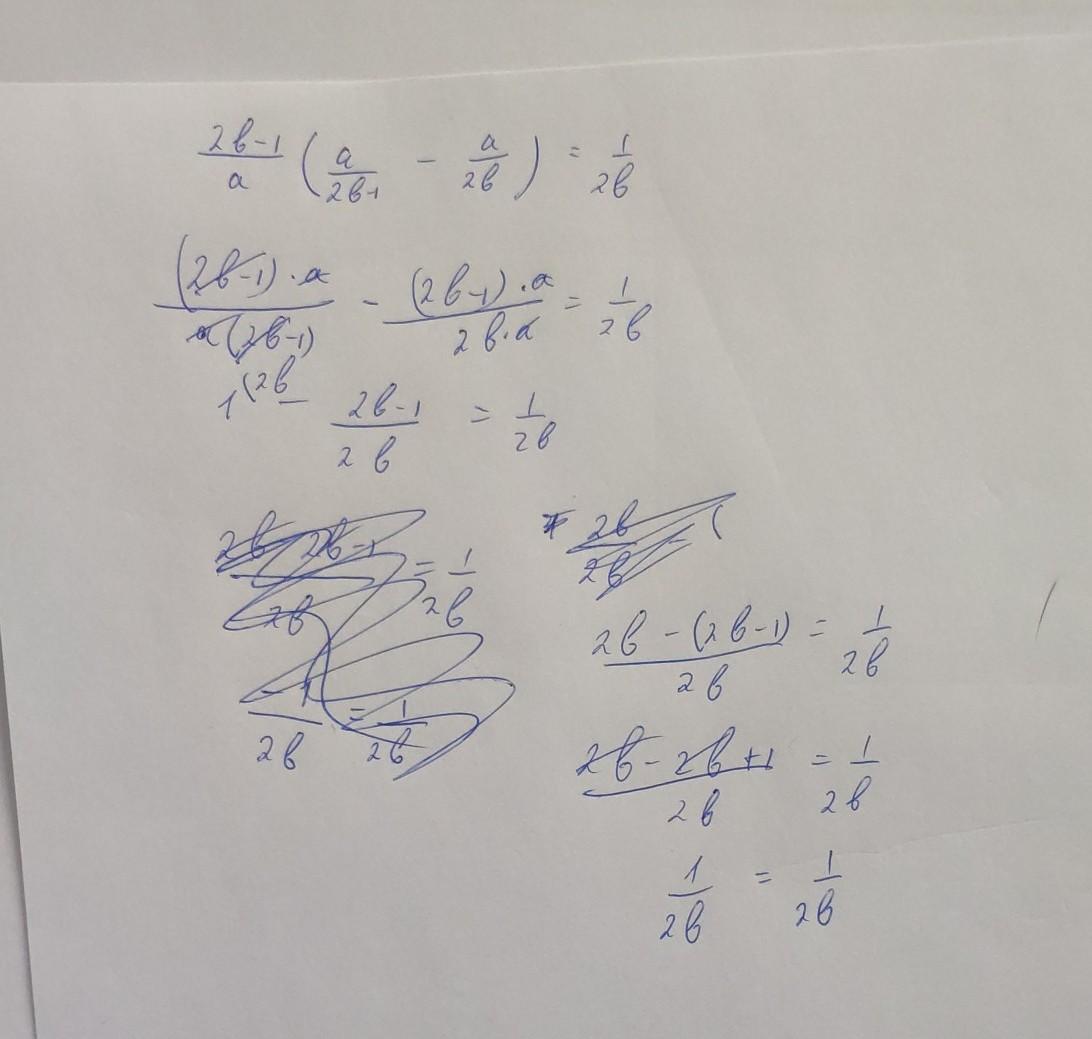 (2b-1)/a (a/(2b-1) - a/2b) = 1/2b
((2b-1)·a)/(a(2b-1)) - ((2b-1)·a)/(2b·a) = 1/2b
1(2b - (2b-1)/2b = 1/2b
= 1/2b
1/2b = 1/2b
2b/2b (
(2b-(2b-1))/2b = 1/2b
(2b-2b+1)/2b = 1/2b
1/2b = 1/2b